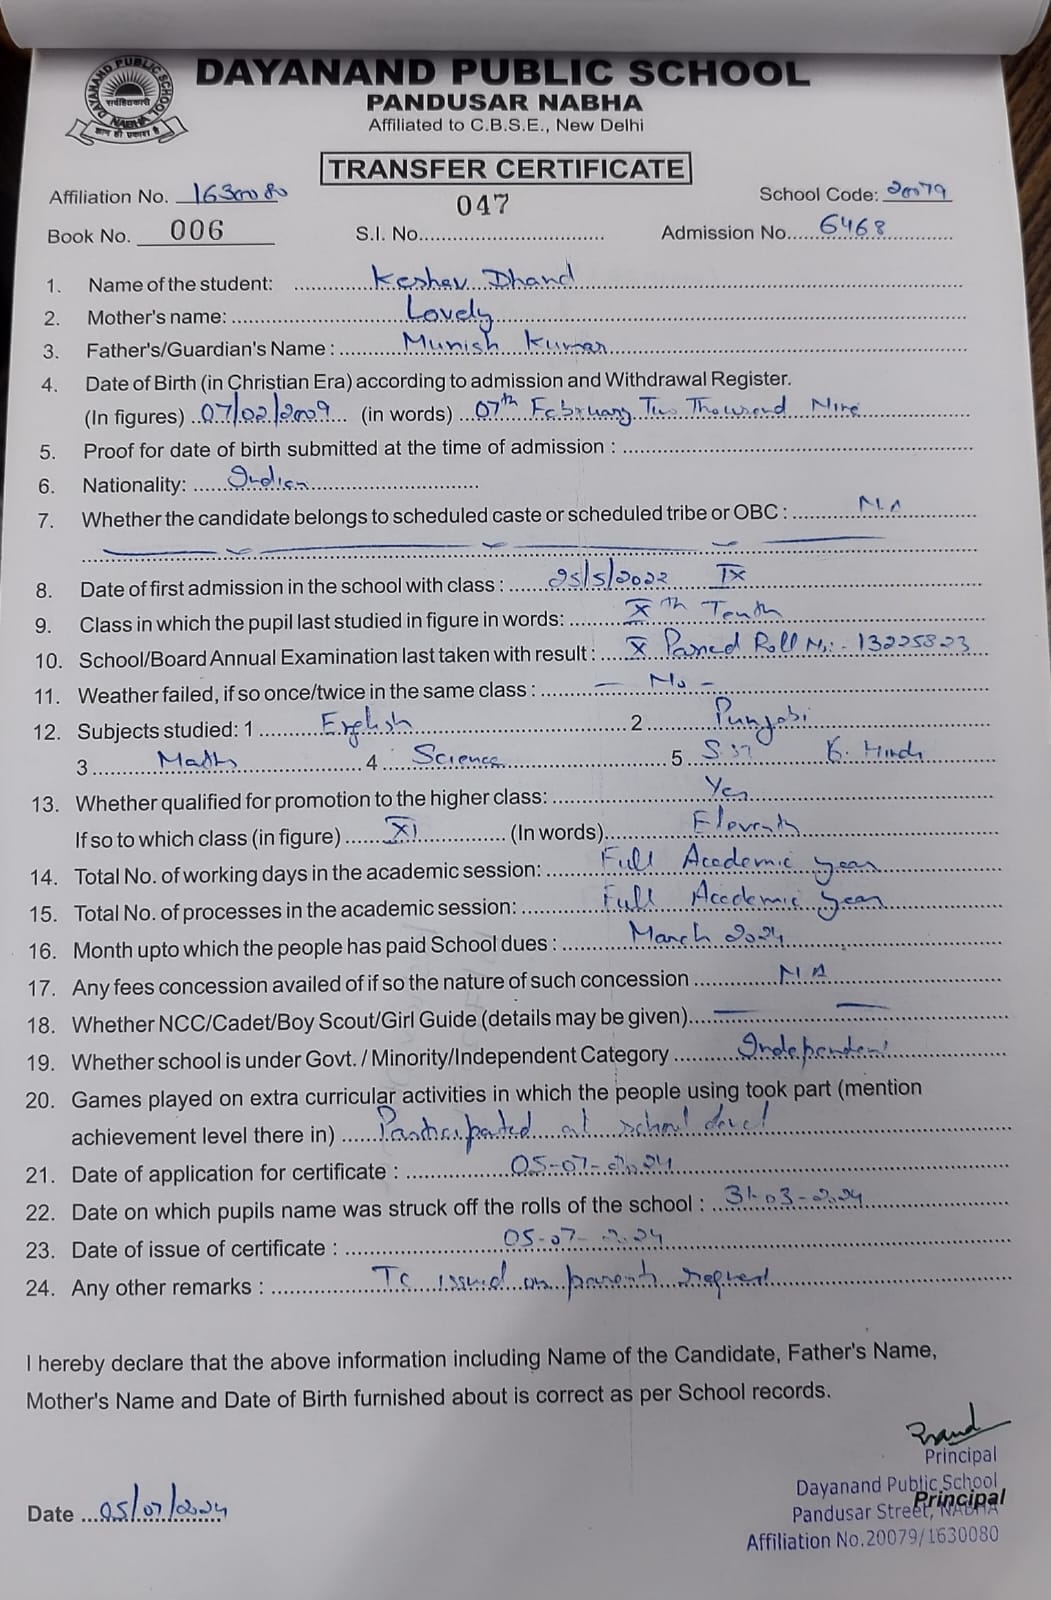 DAYANAND PUBLIC SCHOOL NABHA
सर्वहितकारी
ज्ञान ही प्रकाश है
DAYANAND PUBLIC SCHOOL
PANDUSAR NABHA
Affiliated to C.B.S.E., New Delhi
TRANSFER CERTIFICATE
Affiliation No. 1630080 School Code: 20079
047
Book No. 006 S.I. No. Admission No. 6468
1. Name of the student: Keshav Dhand
2. Mother's name: Lovely
3. Father's/Guardian's Name : Munish Kumar
4. Date of Birth (in Christian Era) according to admission and Withdrawal Register.
(In figures) 07/02/2009 (in words) 07th February Two Thousand Nine
5. Proof for date of birth submitted at the time of admission :
6. Nationality: Indian
7. Whether the candidate belongs to scheduled caste or scheduled tribe or OBC : NA
8. Date of first admission in the school with class : 25/5/2022 IX
9. Class in which the pupil last studied in figure in words: Xth Tenth
10. School/Board Annual Examination last taken with result : X Passed Roll No:- 13225823
11. Weather failed, if so once/twice in the same class : - No -
12. Subjects studied: 1 English 2 Punjabi
3 Maths 4 Science 5 S.St 6. Hindi
13. Whether qualified for promotion to the higher class: Yes
If so to which class (in figure) XI (In words) Eleventh
14. Total No. of working days in the academic session: Full Academic year
15. Total No. of processes in the academic session: Full Academic year
16. Month upto which the people has paid School dues : March 2024
17. Any fees concession availed of if so the nature of such concession NA
18. Whether NCC/Cadet/Boy Scout/Girl Guide (details may be given)
19. Whether school is under Govt. / Minority/Independent Category Independent
20. Games played on extra curricular activities in which the people using took part (mention
achievement level there in) Participated at school level
21. Date of application for certificate : 05-07-2024
22. Date on which pupils name was struck off the rolls of the school : 31-03-2024
23. Date of issue of certificate : 05-07-2024
24. Any other remarks : TC issued on parents request
I hereby declare that the above information including Name of the Candidate, Father's Name,
Mother's Name and Date of Birth furnished about is correct as per School records.
Principal
Dayanand Public School
Principal
Pandusar Street, NABHA
Date 05/07/2024
Affiliation No.20079/1630080